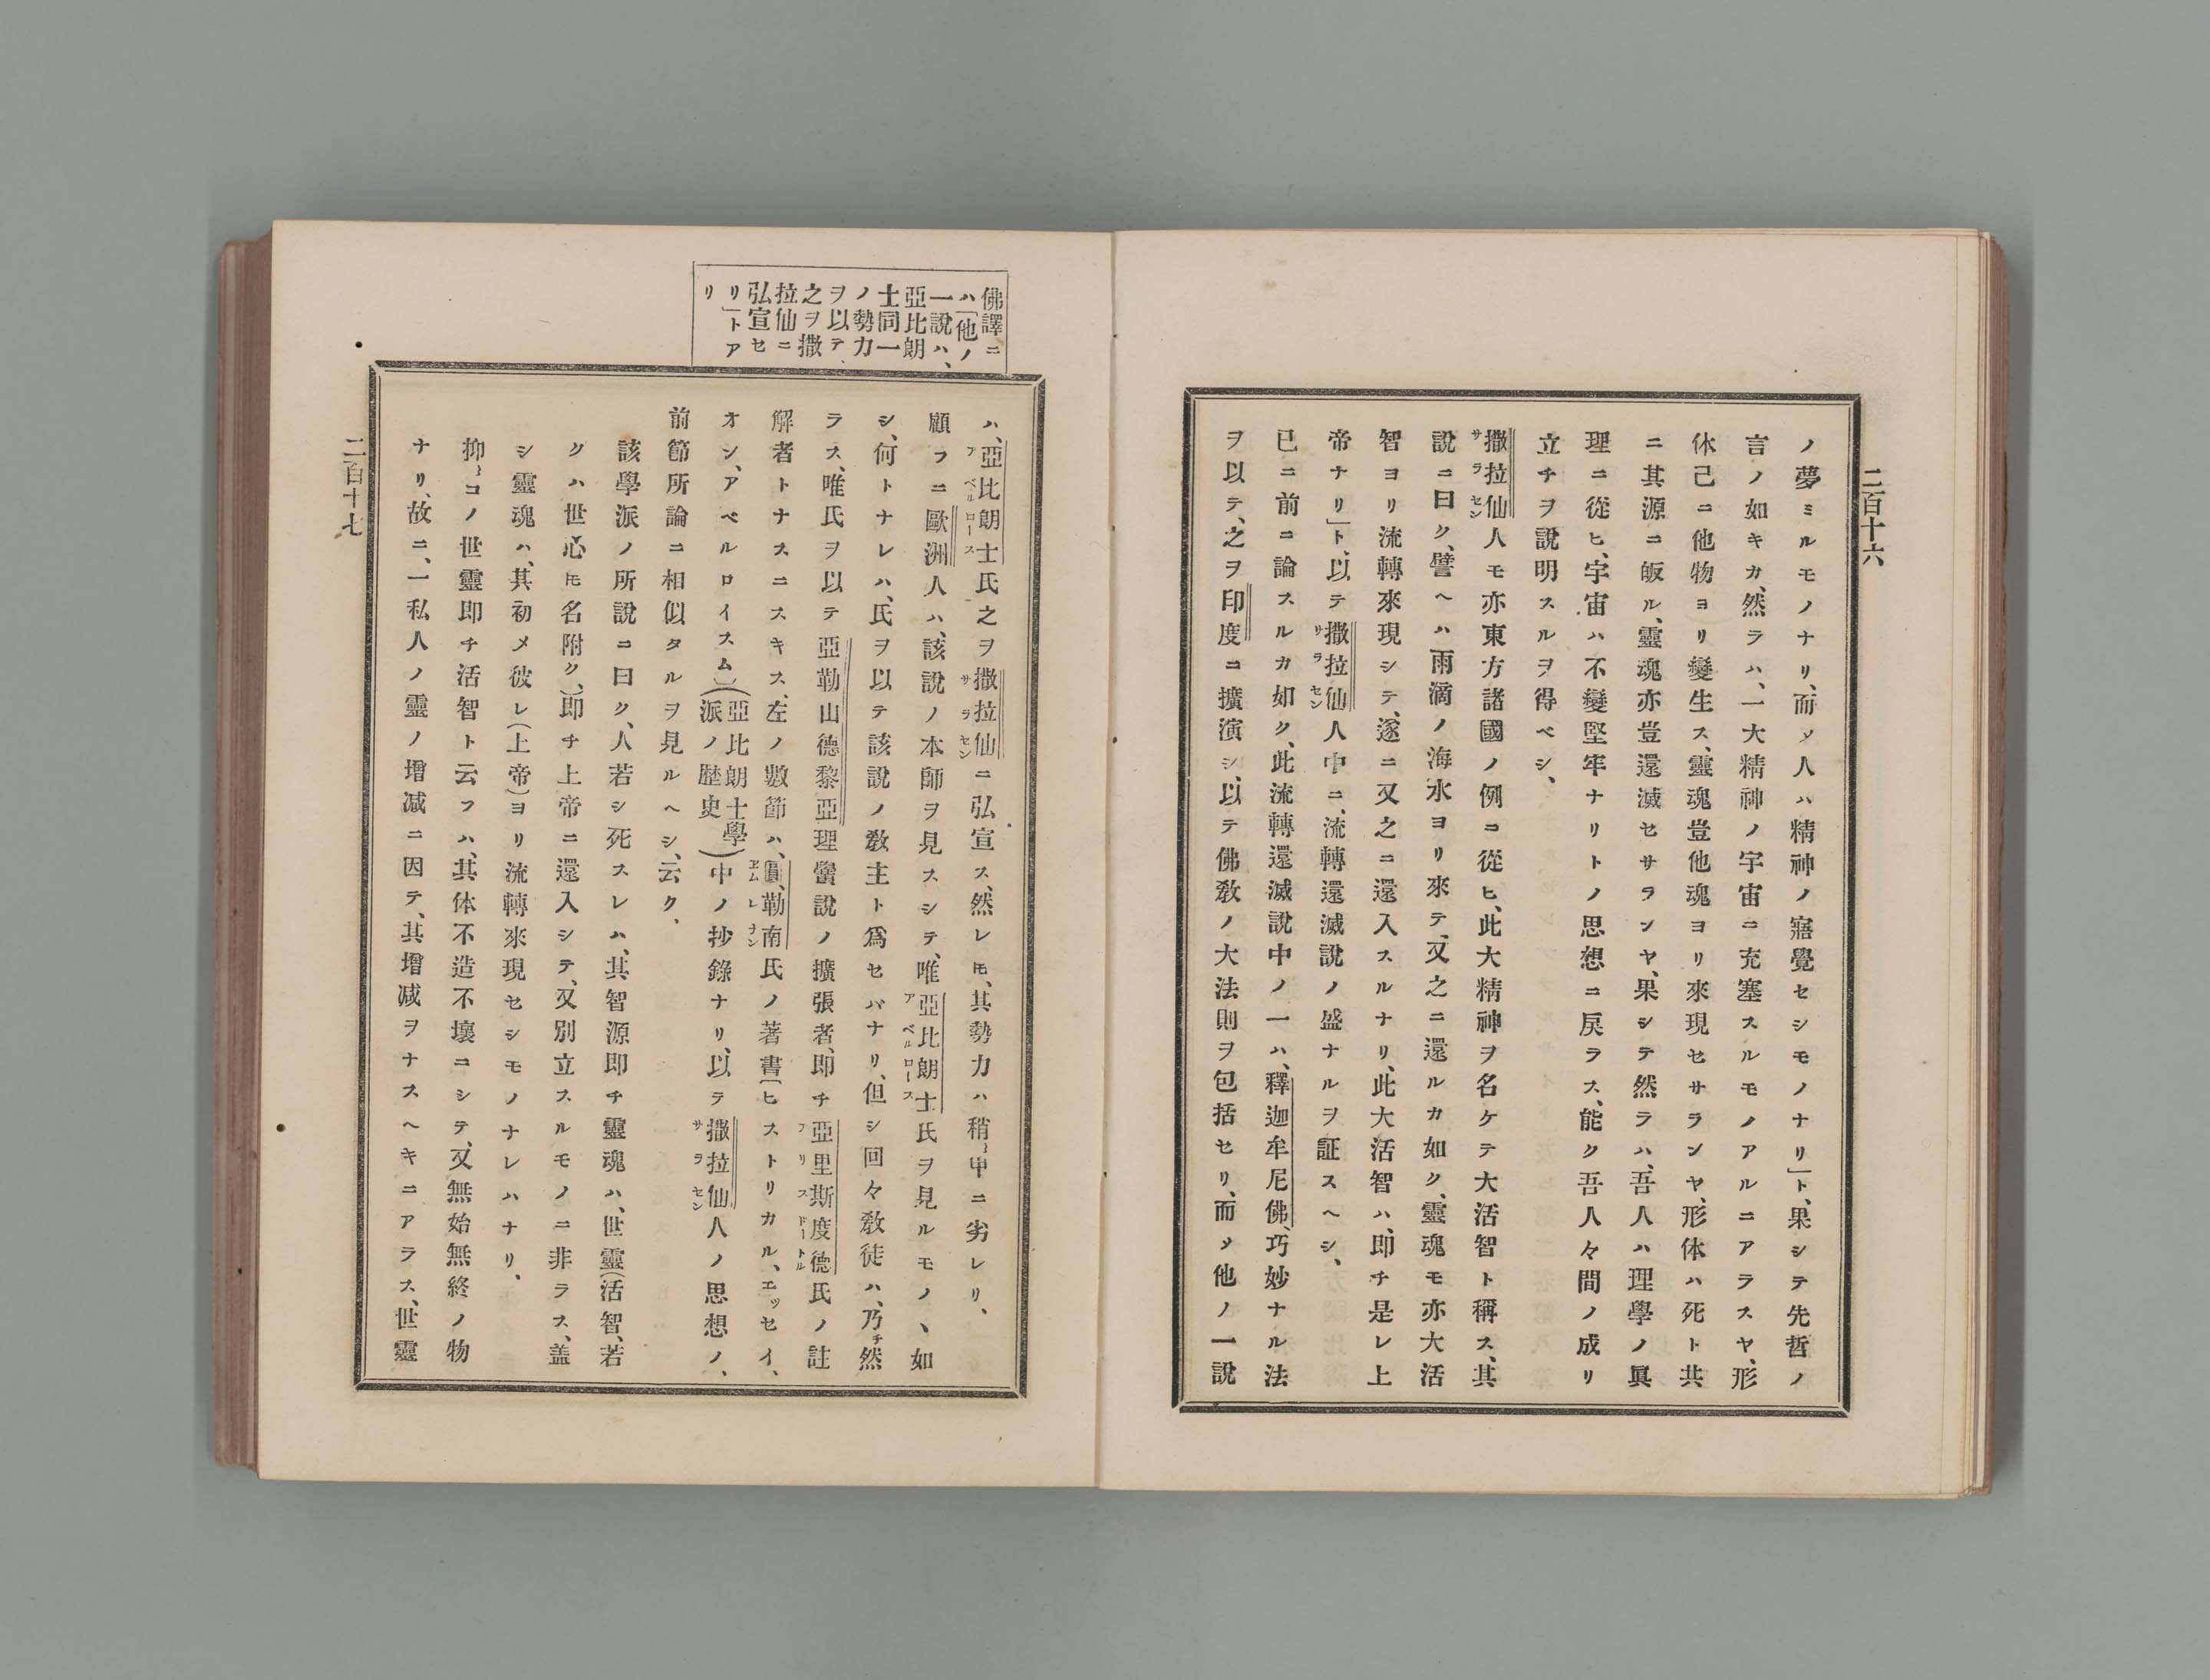 二百十六
ノ夢ミルモノナリ、而ソ人ハ精神ノ寤覺セシモノナリ」ト、果シテ先哲ノ
言ノ如キカ、然ラハ、一大精神ノ宇宙ニ充塞スルモノアルニアラスヤ、形
体已ニ他物ヨリ變生ス、靈魂豈他魂ヨリ來現セサランヤ、形体ハ死ト共
ニ其源ニ皈ル、靈魂亦豈還滅セサランヤ、果シテ然ラハ、吾人ハ理學ノ眞
理ニ從ヒ、宇宙ハ不變堅牢ナリトノ思想ニ戻ラス、能ク吾人々間ノ成リ
立チヲ說明スルヲ得ベシ、
撒拉仙人モ亦東方諸國ノ例ニ從ヒ、此大精神ヲ名ケテ大活智ト稱ス、其
サラセン
說ニ曰ク、譬ヘハ雨滴ノ海水ヨリ來テ、又之ニ還ルカ如ク、靈魂モ亦大活
智ヨリ流轉來現シテ、遂ニ又之ニ還入スルナリ、此大活智ハ、即チ是レ上
帝ナリ」ト、以テ撒拉仙人中ニ、流轉還滅說ノ盛ナルヲ証スヘシ、
サラセン
已ニ前ニ論スルカ如ク、此流轉還滅說中ノ一ハ、釋迦牟尼佛、巧妙ナル法
ヲ以テ、之ヲ印度ニ擴演シ、以テ佛敎ノ大法則ヲ包括セリ、而ソ他ノ一說
佛譯ニ
ハ「他ノ
一說ハ、
亞比朗
士同一
ノ勢力
ヲ以テ、
之ヲ撒
拉仙ニ
弘宣セ
リ」トア
リ
ハ、亞比朗士氏之ヲ撒拉仙ニ弘宣ス、然レ𪜈、其勢力ハ稍〻甲ニ劣レリ、
アベルロース
サラセン
顧フニ歐洲人ハ、該說ノ本師ヲ見スシテ、唯亞比朗士氏ヲ見ルモノヽ如
アベルロース
シ、何トナレハ、氏ヲ以テ該說ノ敎主ト爲セバナリ、但シ回々敎徒ハ、乃チ然
ラス、唯氏ヲ以テ亞勒山德黎亞理學說ノ擴張者、即チ亞里斯度德氏ノ註
アリストートル
解者トナスニスキス、左ノ數節ハ、勒南氏ノ著書(ヒストリカル、エッセイ、
レナン
オシ、アベルロイスム)(亞比朗士學派ノ歷史)中ノ抄錄ナリ、以テ撒拉仙人ノ思想ノ、
サラセン
前節所論ニ相似タルヲ見ルヘシ、云ク、
該學派ノ所說ニ曰ク、人若シ死スレハ、其智源即チ靈魂ハ、世靈(活智、若
クハ世心𪜈名附ク、)即チ上帝ニ還入シテ、又別立スルモノニ非ラス、蓋
シ靈魂ハ、其初メ彼レ(上帝)ヨリ流轉來現セシモノナレハナリ、
抑〻コノ世靈即チ活智ト云フハ、其体不造不壞ニシテ、又無始無終ノ物
ナリ、故ニ、一私人ノ靈ノ增減ニ因テ、其增減ヲナスヘキニアラス、世靈
二百十七